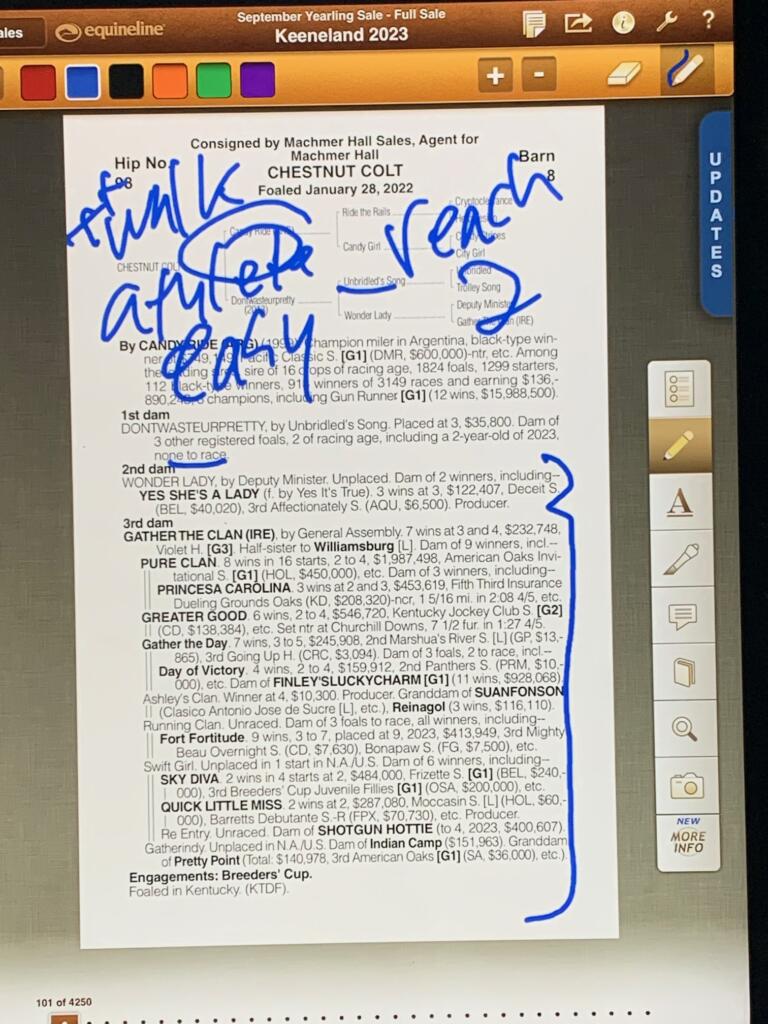 ales
equineline
September Yearling Sale - Full Sale
Keeneland 2023
?
+
-
UPDATES
Consigned by Machmer Hall Sales, Agent for
Machmer Hall
Hip No.
98
CHESTNUT COLT
Barn
8
Foaled January 28, 2022
walk
reach
easy
2
Ride the Rails
Candy Girl
City Girl
CHESTNUT COLT
Unbridled's Song
Trolley Song
Dontwasteurpretty
Wonder Lady
Deputy Minister
(IRE)
By CANDY RIDE (ARG) (1999). Champion miler in Argentina, black-type win-
Pacific Classic S. [G1] (DMR, $600,000)-ntr, etc. Among
the leading sires, sire of 16 crops of racing age, 1824 foals, 1299 starters,
112 black-type winners, winners of 3149 races and earning $136,-
champions, including Gun Runner [G1] (12 wins, $15,988,500).
1st dam
DONTWASTEURPRETTY, by Unbridled's Song. Placed at 3, $35,800. Dam of
3 other registered foals, 2 of racing age, including a 2-year-old of 2023,
none to race.
2nd dam
WONDER LADY, by Deputy Minister. Unplaced. Dam of 2 winners, including--
YES SHE'S A LADY (f. by Yes It's True). 3 wins at 3, $122,407, Deceit S.
(BEL, $40,020), 3rd Affectionately S. (AQU, $6,500). Producer.
3rd dam
GATHER THE CLAN (IRE), by General Assembly. 7 wins at 3 and 4, $232,748,
Violet H. [G3]. Half-sister to Williamsburg [L]. Dam of 9 winners, incl.--
PURE CLAN. 8 wins in 16 starts, 2 to 4, $1,987,498, American Oaks Invi-
tational S. [G1] (HOL, $450,000), etc. Dam of 3 winners, including--
PRINCESA CAROLINA. 3 wins at 2 and 3, $453,619, Fifth Third Insurance
Dueling Grounds Oaks (KD, $208,320)-ncr, 1 5/16 mi. in 2:08 4/5, etc.
GREATER GOOD. 6 wins, 2 to 4, $546,720, Kentucky Jockey Club S. [G2]
(CD, $138,384), etc. Set ntr at Churchill Downs, 7 1/2 fur. in 1:27 4/5.
Gather the Day. 7 wins, 3 to 5, $245,908, 2nd Marshua's River S. [L] (GP, $13,-
865), 3rd Going Up H. (CRC, $3,094). Dam of 3 foals, 2 to race, incl.--
Day of Victory. 4 wins, 2 to 4, $159,912, 2nd Panthers S. (PRM, $10,-
000), etc. Dam of FINLEY'SLUCKYCHARM [G1] (11 wins, $928,068).
Ashley's Clan. Winner at 4, $10,300. Producer. Granddam of SUANFONSON
(Clasico Antonio Jose de Sucre [L], etc.), Reinagol (3 wins, $116,110).
Running Clan. Unraced. Dam of 3 foals to race, all winners, including--
Fort Fortitude. 9 wins, 3 to 7, placed at 9, 2023, $413,949, 3rd Mighty
Beau Overnight S. (CD, $7,630), Bonapaw S. (FG, $7,500), etc.
Swift Girl. Unplaced in 1 start in N.A./U.S. Dam of 6 winners, including--
SKY DIVA. 2 wins in 4 starts at 2, $484,000, Frizette S. [G1] (BEL, $240,-
000), 3rd Breeders' Cup Juvenile Fillies [G1] (OSA, $200,000), etc.
QUICK LITTLE MISS. 2 wins at 2, $287,080, Moccasin S. [L] (HOL, $60,-
000), Barretts Debutante S.-R (FPX, $70,730), etc. Producer.
Re Entry. Unraced. Dam of SHOTGUN HOTTIE (to 4, 2023, $400,607).
Gatherindy. Unplaced in N.A./U.S. Dam of Indian Camp ($151,963). Granddam
of Pretty Point (Total: $140,978, 3rd American Oaks [G1] (SA, $36,000), etc.).
Engagements: Breeders' Cup.
Foaled in Kentucky. (KTDF).
A
NEW
MORE
INFO
101 of 4250